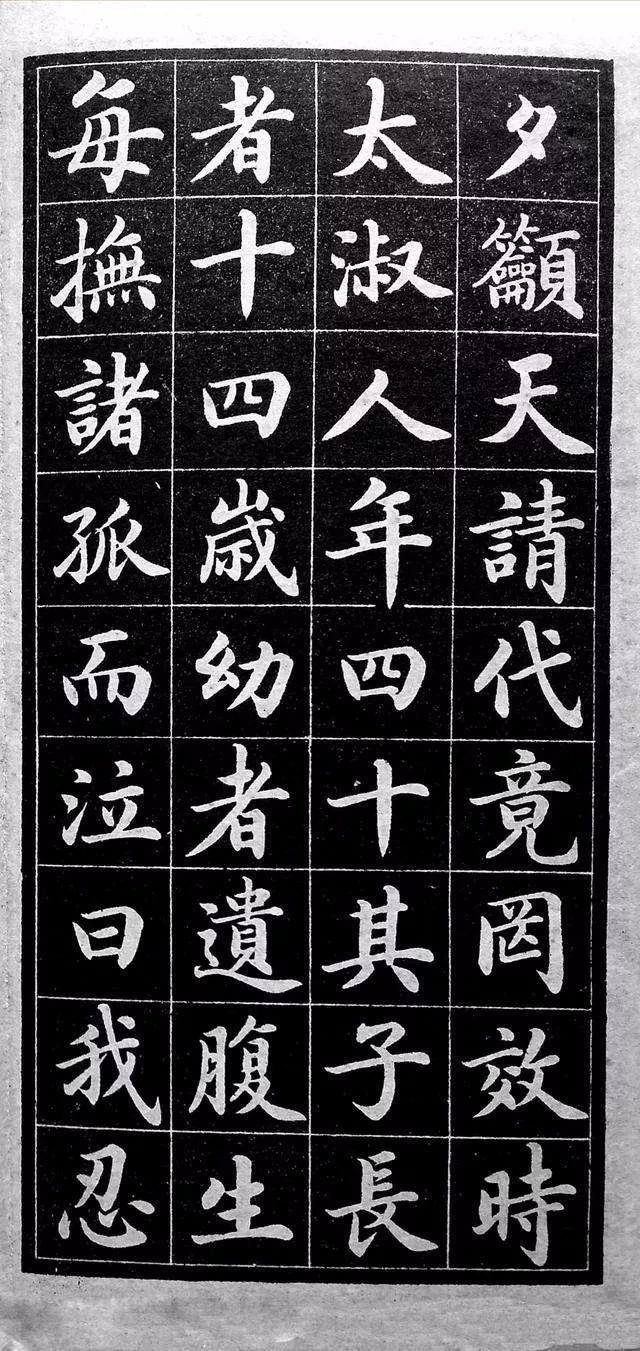 夕籲天請代竟罔效時
太淑人年四十其子長
者十四歲幼者遺腹生
每撫諸孤而泣曰我忍